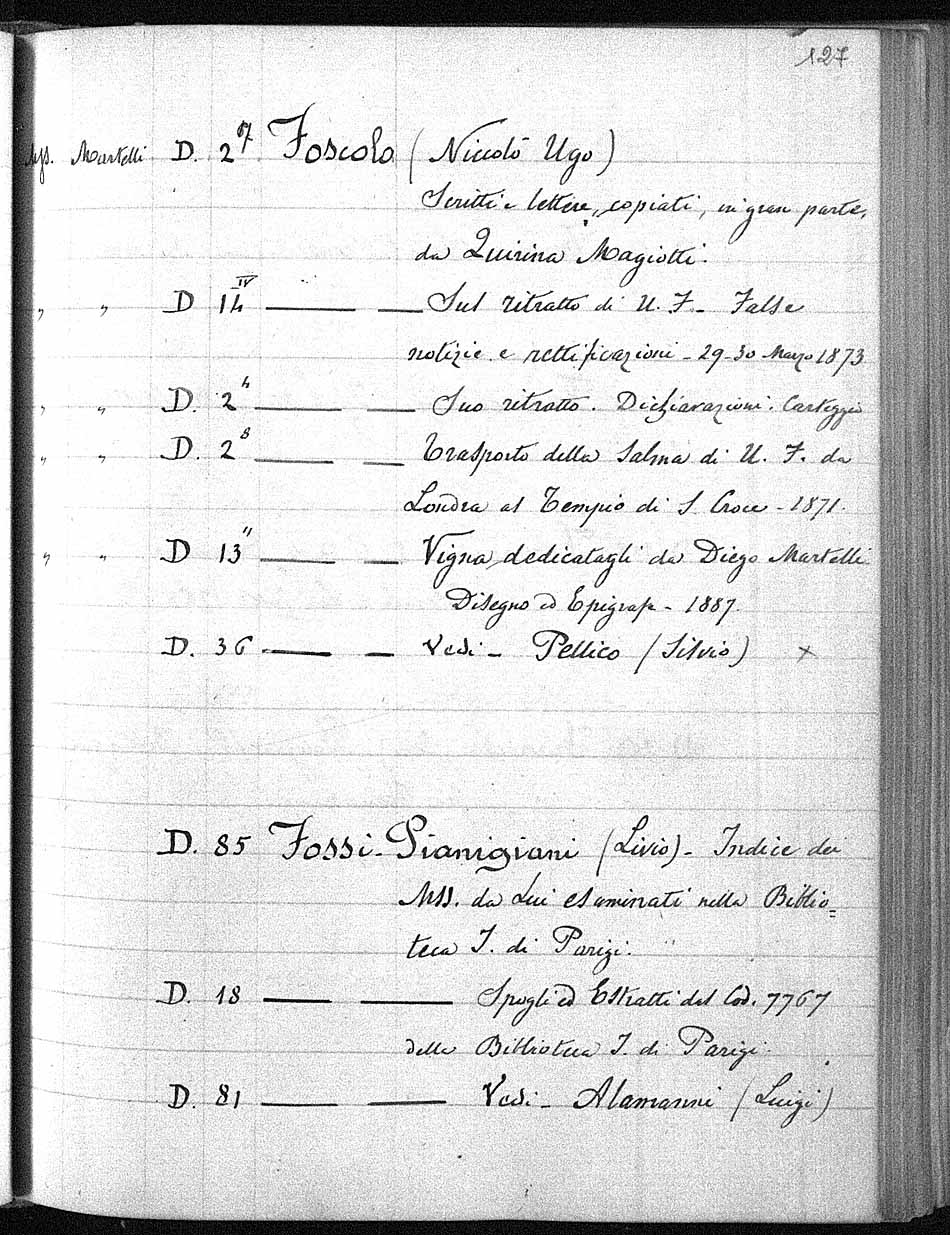 127
Mss. Martelli D. 2⁷ Foscolo (Niccolò Ugo)
Scritti e lettere, copiati, in gran parte,
da Quirina Magiotti.
" " D 14ᴵⱽ — — Sul ritratto di U. F. - False
notizie e rettificazioni - 29-30 Marzo 1873
" " D. 2⁴ — — Suo ritratto. Dichiarazioni. Carteggio
" " D. 2⁸ — — Trasporto della Salma di U. F. da
Londra al Tempio di S Croce - 1871.
" " D 13" — — Vigna dedicatagli da Diego Martelli
Disegno ed Epigrafe - 1887.
D. 36 — — Vedi - Pellico (Silvio) ×
D. 85 Fossi-Pianigiani (Livio) - Indice dei
Mss. da Lui esaminati nella Biblio=
teca I. di Parigi.
D. 18 — — Spogli ed Estratti dal Cod. 7767
della Biblioteca I. di Parigi.
D. 81 — — Vedi - Alamanni (Luigi)